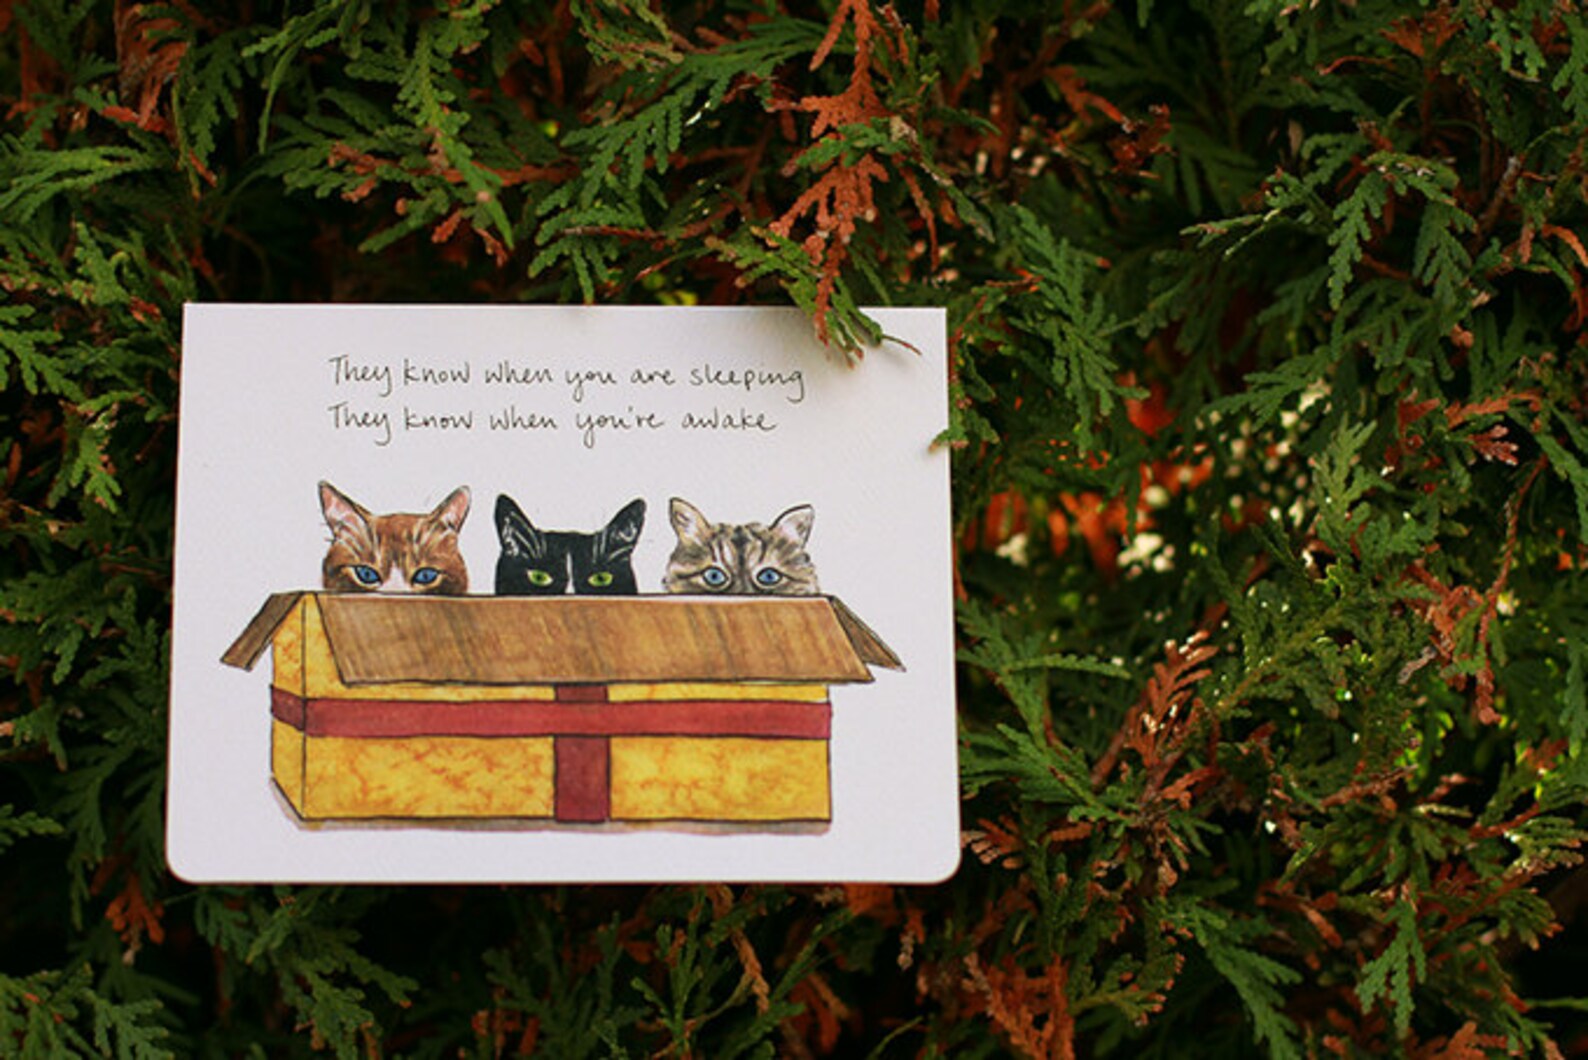 They know when you are sleeping
They know when you're awake